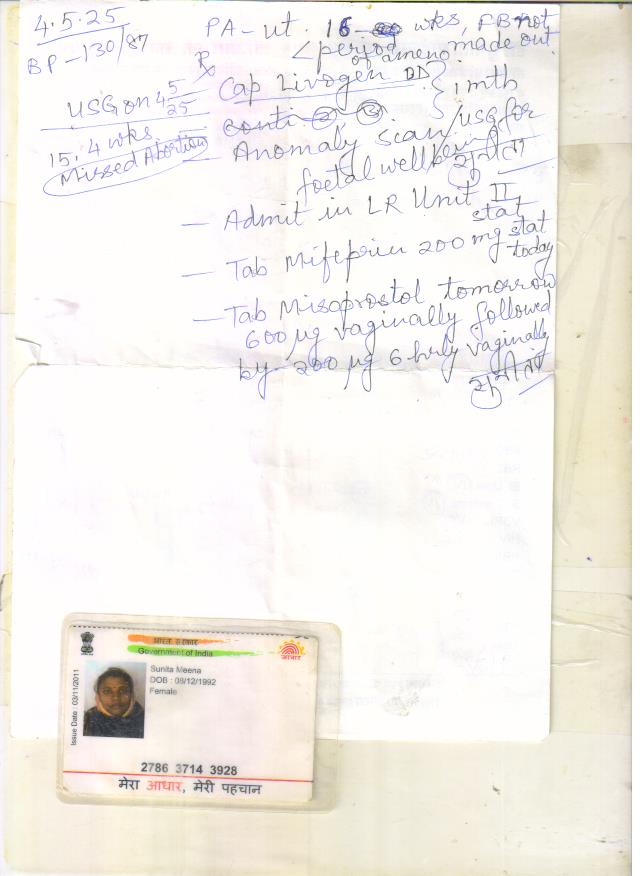 4.5.25
BP-130/87
USG on 4/5/25
15.4 wks.
Missed Abortion
PA-ut. 16 wks, FB not
< period of ameno made out
Rx
Cap Livogen BD } 1 mth
conti
- Anomaly scan/USG for
foetal wellbeing
- Admit in LR Unit II
stat
- Tab Mifeprin 200 mg stat
today
- Tab Misoprostol tomorrow
600 µg vaginally followed
by 200 µg 6 hrly vaginally
भारत सरकार
Government of India
आधार
Issue Date : 03/11/2011
Sunita Meena
DOB : 08/12/1992
Female
2786 3714 3928
मेरा आधार, मेरी पहचान